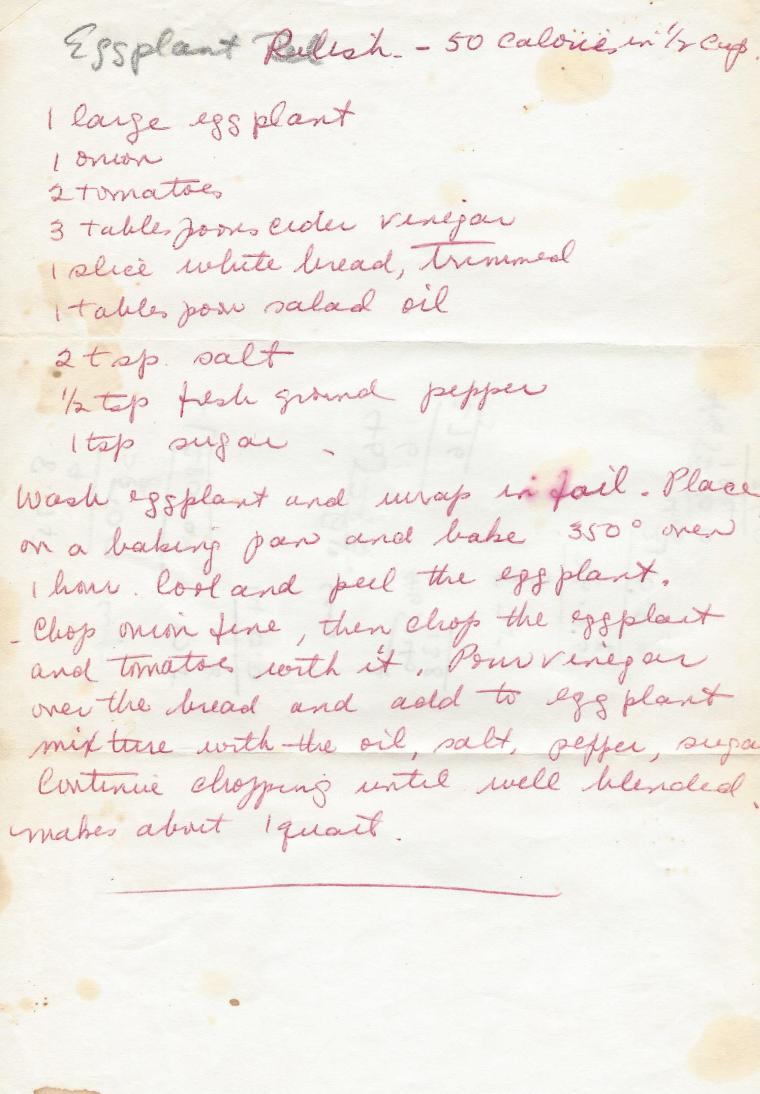 Eggplant Relish - 50 calories in 1/2 cup.
1 large eggplant
1 onion
2 tomatoes
3 tablespoons cider vinegar
1 slice white bread, trimmed
1 tablespoon salad oil
2 tsp. salt
1/2 tsp fresh ground pepper
1 tsp sugar
Wash eggplant and wrap in foil. Place
on a baking pan and bake 350° oven
1 hour. Cool and peel the eggplant.
- Chop onion fine, then chop the eggplant
and tomatoes with it. Pour vinegar
over the bread and add to eggplant
mixture with the oil, salt, pepper, suga
Continue chopping until well blended.
makes about 1 quart.